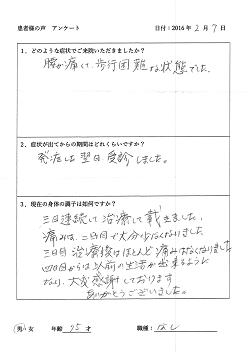 患者様の声 アンケート 日付：2016年 2月 7日
1、どのような症状でご来院いただきましたか？
腰が痛くて、歩行困難な状態でした。
2、症状が出てからの期間はどれくらいですか？
発症した翌日受診しました。
3、現在の身体の調子は如何ですか？
三日連続して治療して戴きました。
痛みは、二日目で大分少なくなりました
三日目治療後はほとんど痛みはなくなりました
四日目からは以前の生活が出来るように
なり、大変感謝しております
ありがとうございました。
男・女 年齢 75才 職種：なし